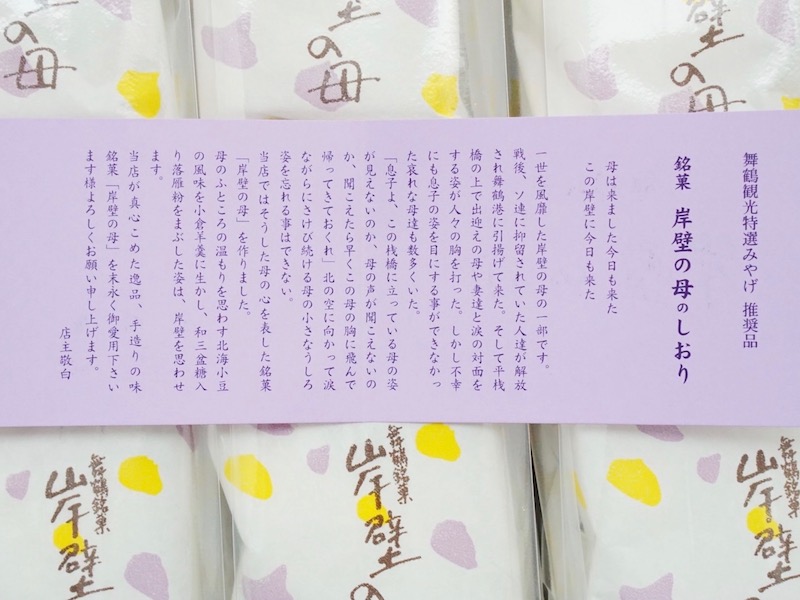 の母
の母
壁の母
舞鶴観光特選みやげ 推奨品
銘菓 岸壁の母のしおり
母は来ました今日も来た
この岸壁に今日も来た
一世を風靡した岸壁の母の一部です。
戦後、ソ連に抑留されていた人達が解放
され舞鶴港に引揚げて来た。そして平桟
橋の上で出迎えの母や妻達と涙の対面を
する姿が人々の胸を打った。しかし不幸
にも息子の姿を目にする事ができなかっ
た哀れな母達も数多くいた。
「息子よ、この桟橋に立っている母の姿
が見えないのか、母の声が聞こえないの
か、聞こえたら早くこの母の胸に飛んで
帰ってきておくれ」北の空に向かって涙
ながらにさけび続ける母の小さなうしろ
姿を忘れる事はできない。
当店ではそうした母の心を表した銘菓
「岸壁の母」を作りました。
母のふところの温もりを思わす北海小豆
の風味を小倉羊羹に生かし、和三盆糖入
り落雁粉をまぶした姿は、岸壁を思わせ
ます。
当店が真心こめた逸品、手造りの味
銘菓「岸壁の母」を末永く御愛用下さい
ます様よろしくお願い申し上げます。
店主敬白
舞鶴銘菓
岸壁の
舞鶴銘菓
岸壁の
舞鶴銘菓
岸壁の